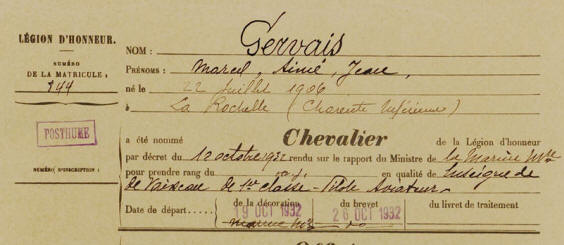 LÉGION D'HONNEUR.
NUMÉRO
DE LA MATRICULE :
144
POSTHUME
NUMÉRO D'INSCRIPTION :
NOM : Gervais
PRÉNOMS : Marcel, Aimé, Jean,
né le 22 juillet 1906
à La Rochelle (Charente Inférieure)
a été nommé Chevalier de la Légion d'honneur
par décret du 12 octobre 1932 rendu sur le rapport du Ministre de la Marine Mre
pour prendre rang du en qualité de Enseigne de
de Vaisseau de 1re classe - Pilote Aviateur
Date de départ de la décoration du brevet du livret de traitement
19 OCT 1932 26 OCT 1932